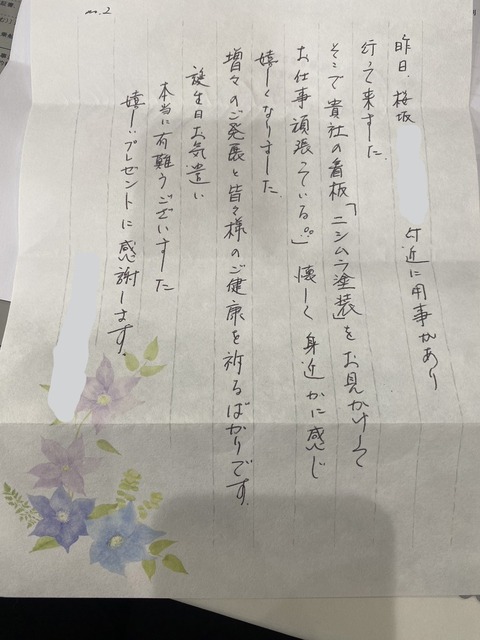 m.2
昨日、桜坂 付近に用事があり
行って来ました
そこで貴社の看板「ニシムラ塗装」をお見かけして
お仕事頑張っている。」 懐しく身近かに感じ
嬉しくなりました
増々のご発展と皆々様のご健康を祈るばかりです。
誕生日お気遣い
本当に有難うございました
嬉しいプレゼントに感謝します。